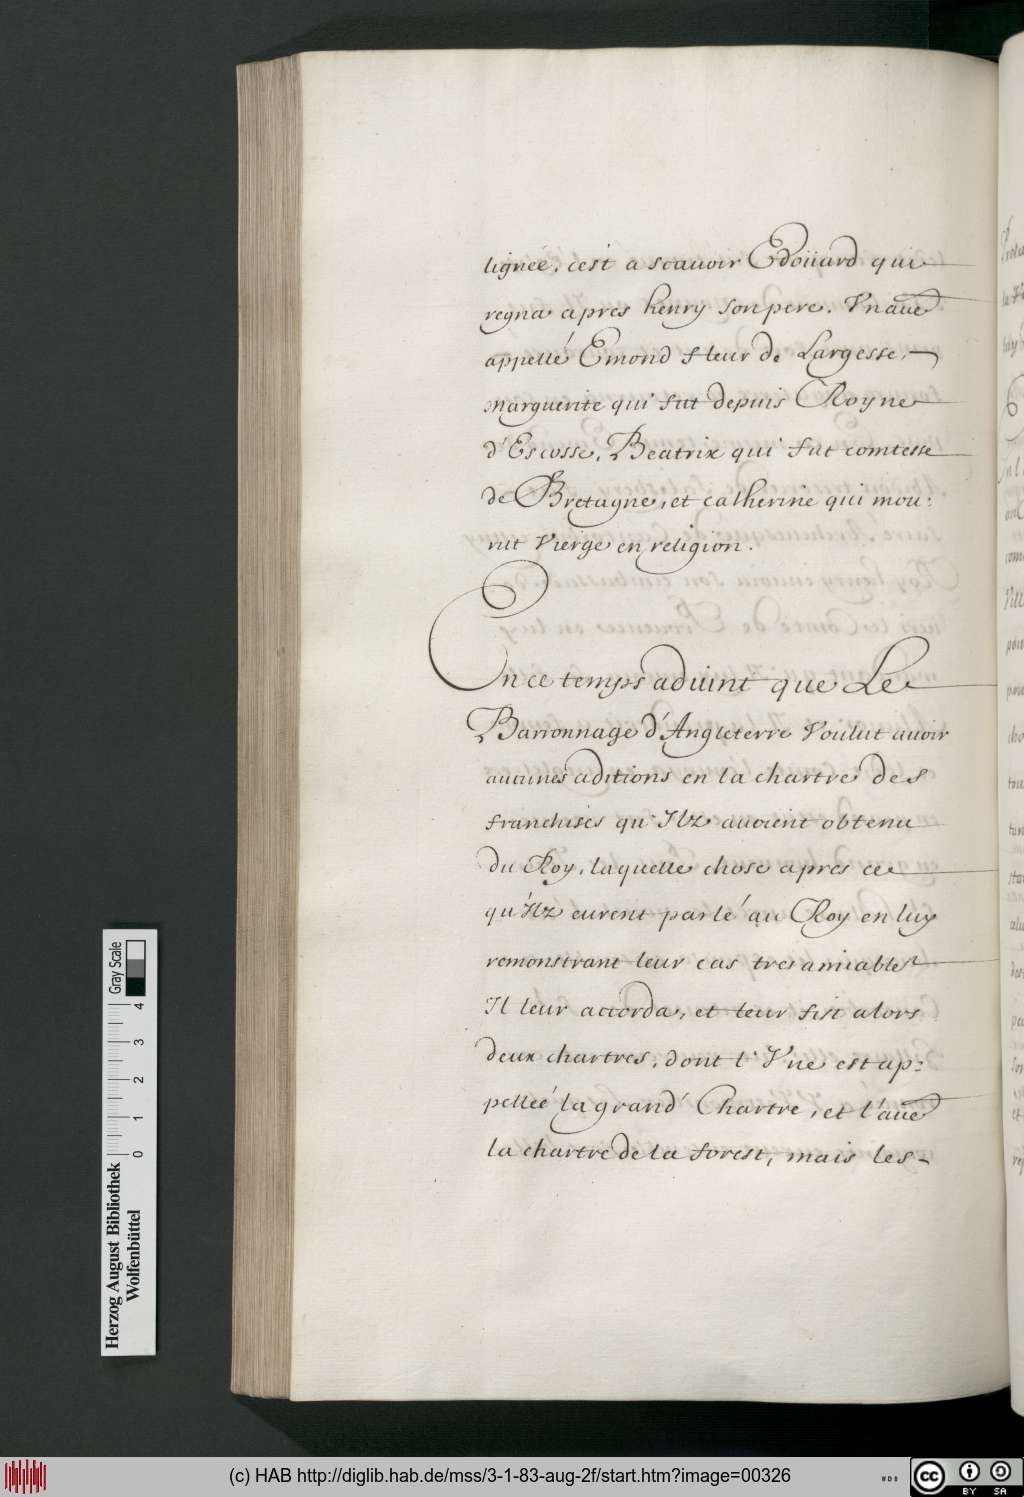 lignée, c'est a scauoir Edoüard qui
regna apres henry son pere. Vn aue
appellé Emond fleur de Largesse,
marguerite qui fut depuis Royne
d'Escosse, Beatrix qui fut comtesse
de Bretagne, et catherine qui mou:
rut Vierge en religion.
En ce temps aduint que Le
Barronnage d'Angleterre Voulut auoir
aucunes aditions en la chartre des
franchises qu'Ilz auoient obtenu
du Roy, laquelle chose apres ce
qu'Ilz eurent parlé au Roy en luy
remonstrant leur cas tres amiable
Il leur accorda, et leur fist alors
deux chartres, dont l'Vne est ap:
pelleé la grand' Chartre, et l'aue
la chartre de la forest, mais les
Herzog August Bibliothek
Wolfenbüttel
0 1 2 3 4
Gray Scale
(c) HAB http://diglib.hab.de/mss/3-1-83-aug-2f/start.htm?image=00326
WDB
cc BY SA